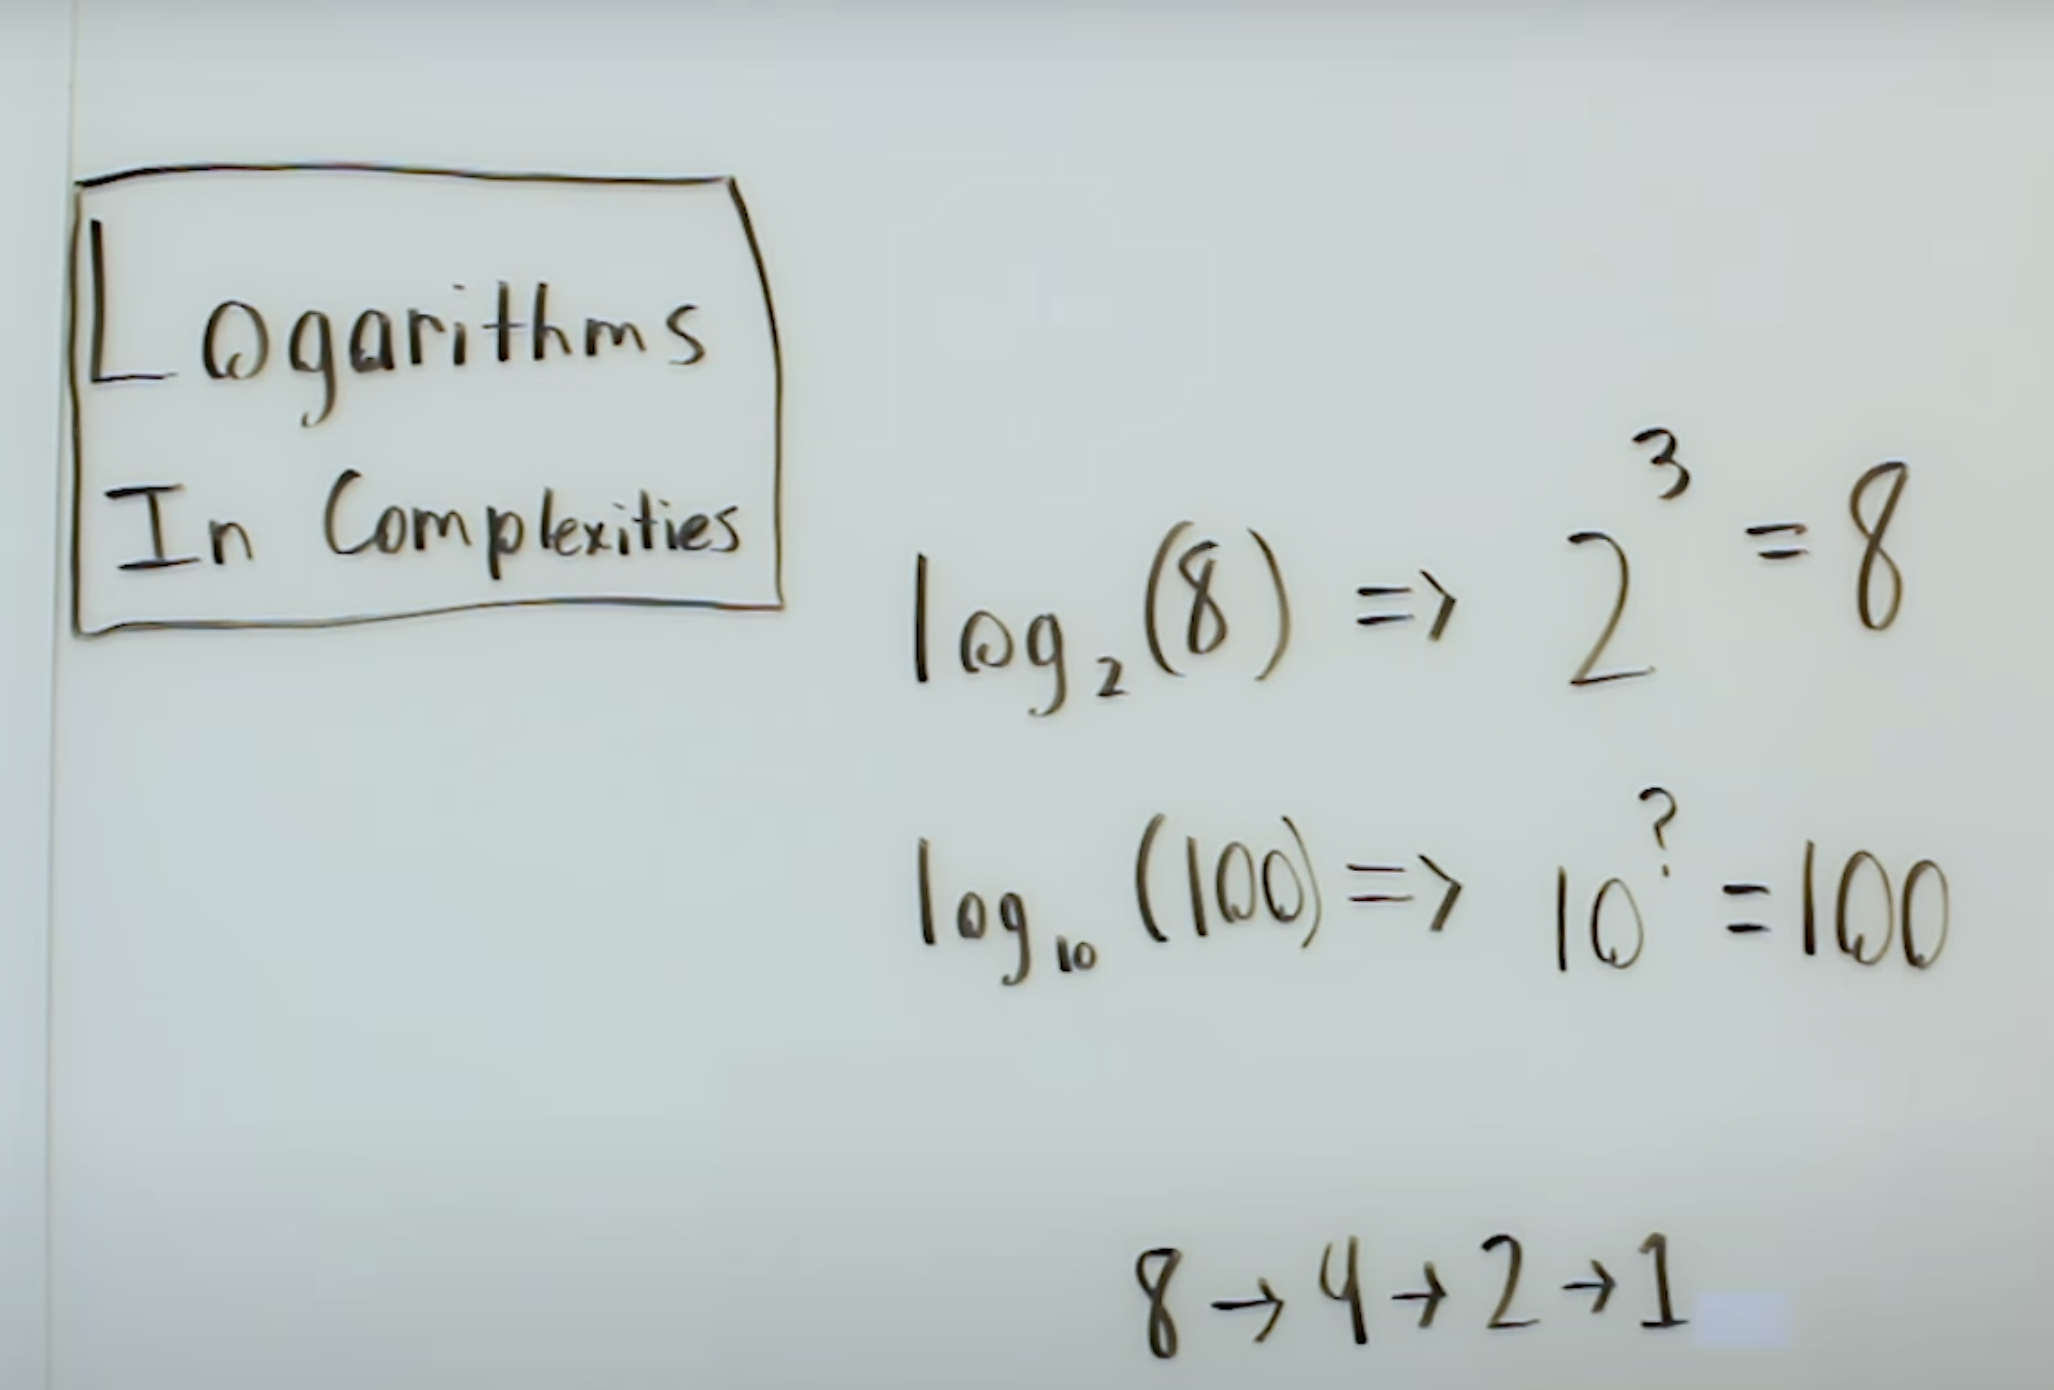 Logarithms
In Complexities
log₂(8) => 2³ = 8
log₁₀(100) => 10^? = 100
8→4→2→1